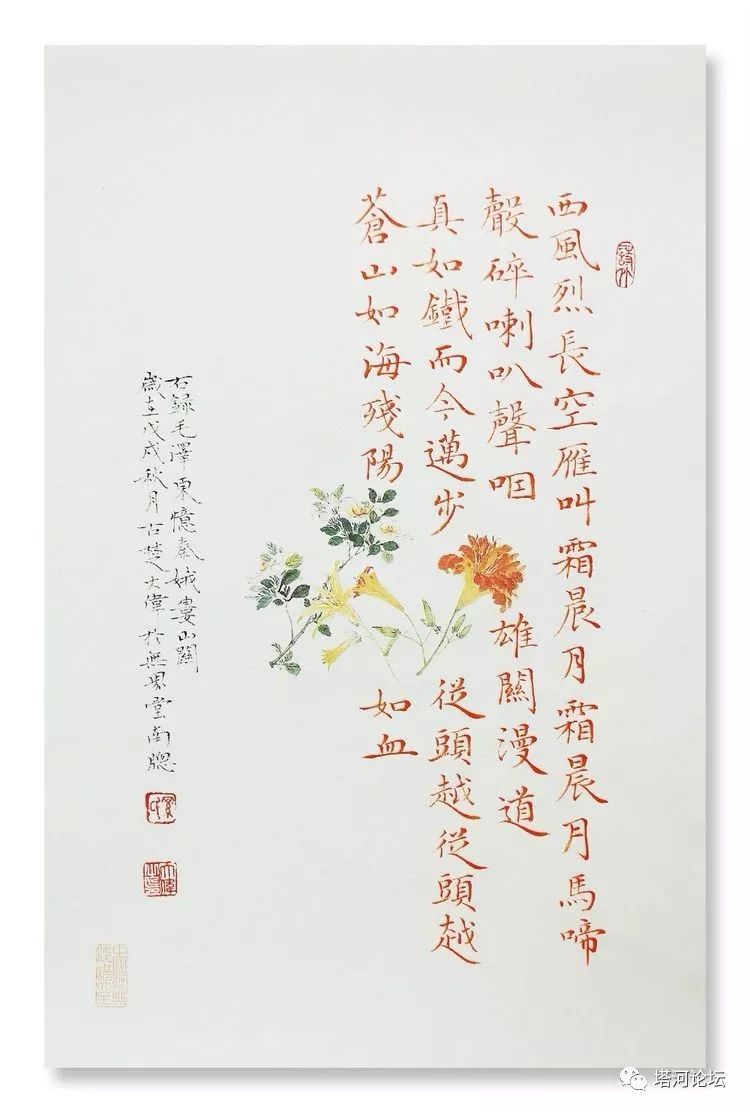 西風烈長空雁叫霜晨月霜晨月馬啼
殸碎喇叭聲咽 雄關漫道
真如鐵而今邁步 從頭越從頭越
蒼山如海殘陽 如血
右録毛澤東憶秦娥婁山關
歲在戊戌秋月古楚大偉於無界堂南牕
塔河论坛